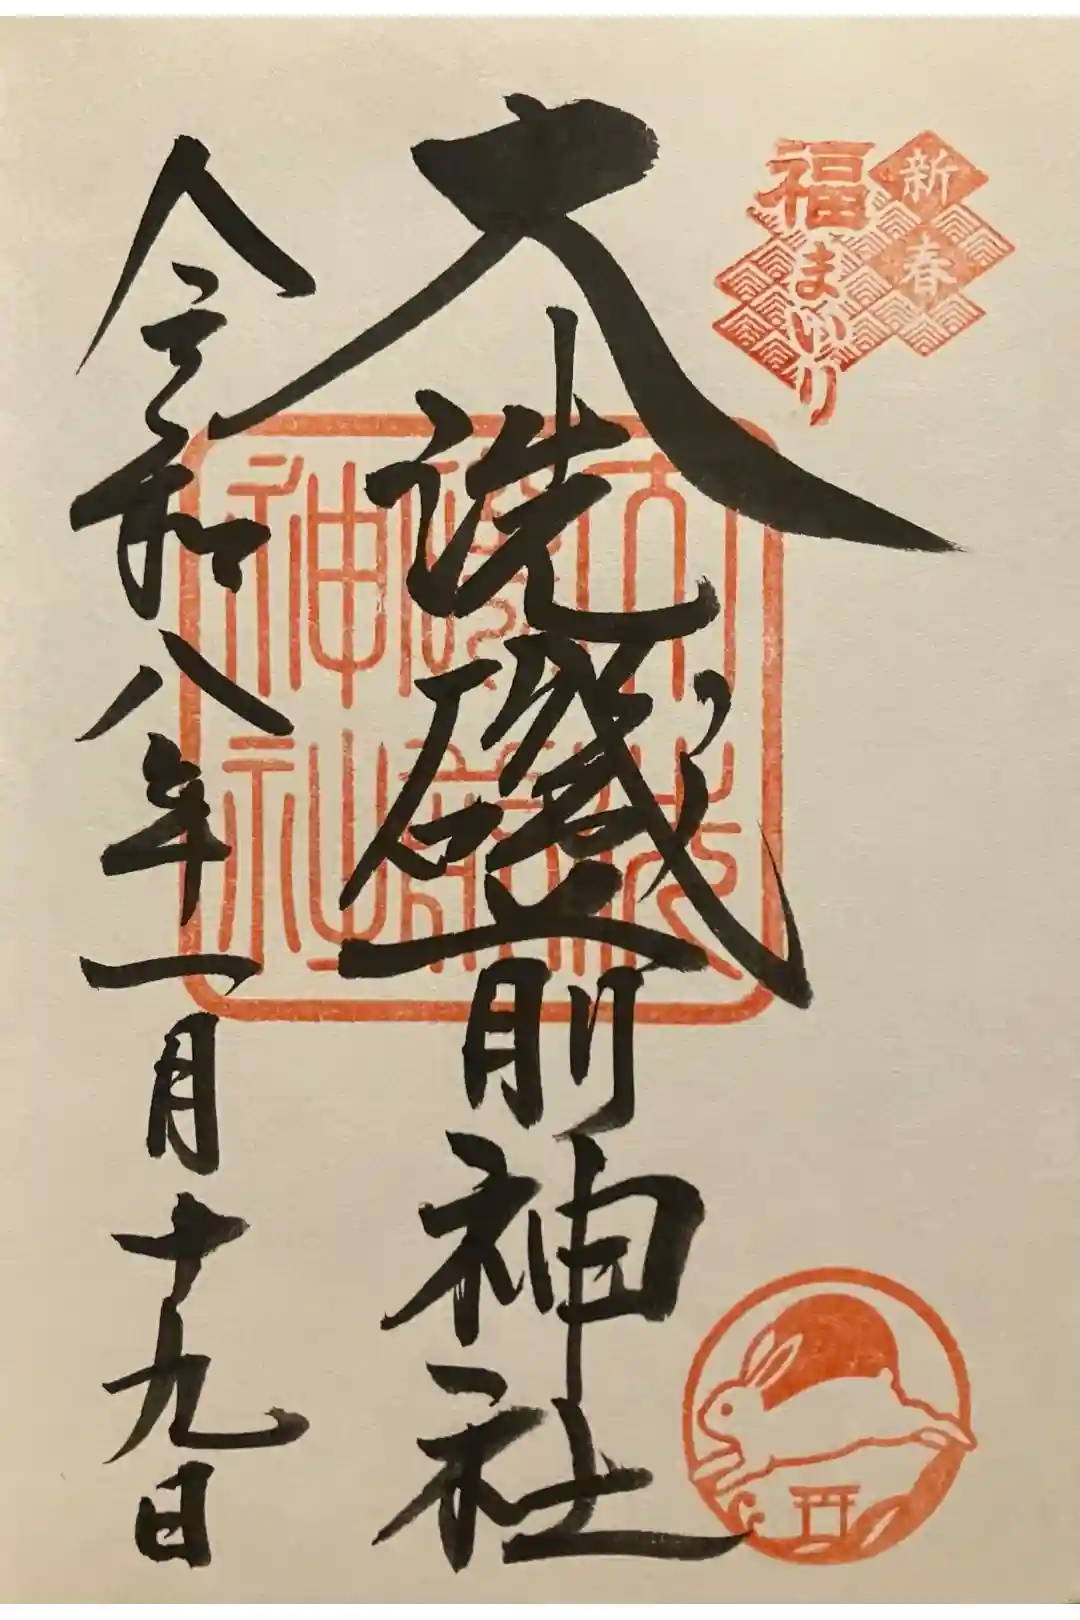 新春
福まいり
大洗磯前神社
大洗磯前神社
令和八年一月十九日